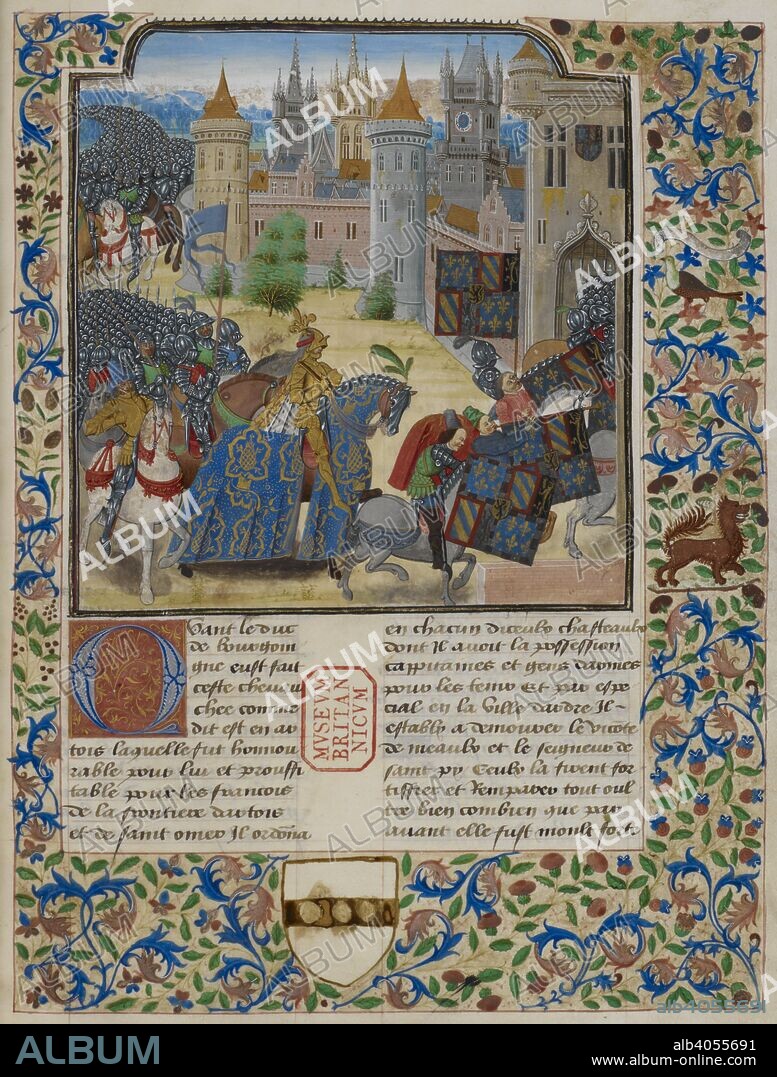 Quant le duc
de bourgoin
gne eust fait
ceste chevau
chee comme
dit est en ar
tois laquelle fut honnou
rable pour lui et prouffi
table pour les francois
de la frontiere dartois
et de saint omer Il ordona
en chacun diceulx chasteaulx
dont il avoit la possession
cappitaines et gens darmes
pour les tenir Et par espe
cial en la ville dardre Il
establi a demourer le viconte
de meaulx et le seigneur de
saint py Ceulx la firent for
tiffier et Remparer tout oul
tre bien combien que par
avant elle fust moult fort
MVSEVM
BRITAN
NICVM
ALBUM
alb4055691
ALBUM
alb4055691
www.album-online.com